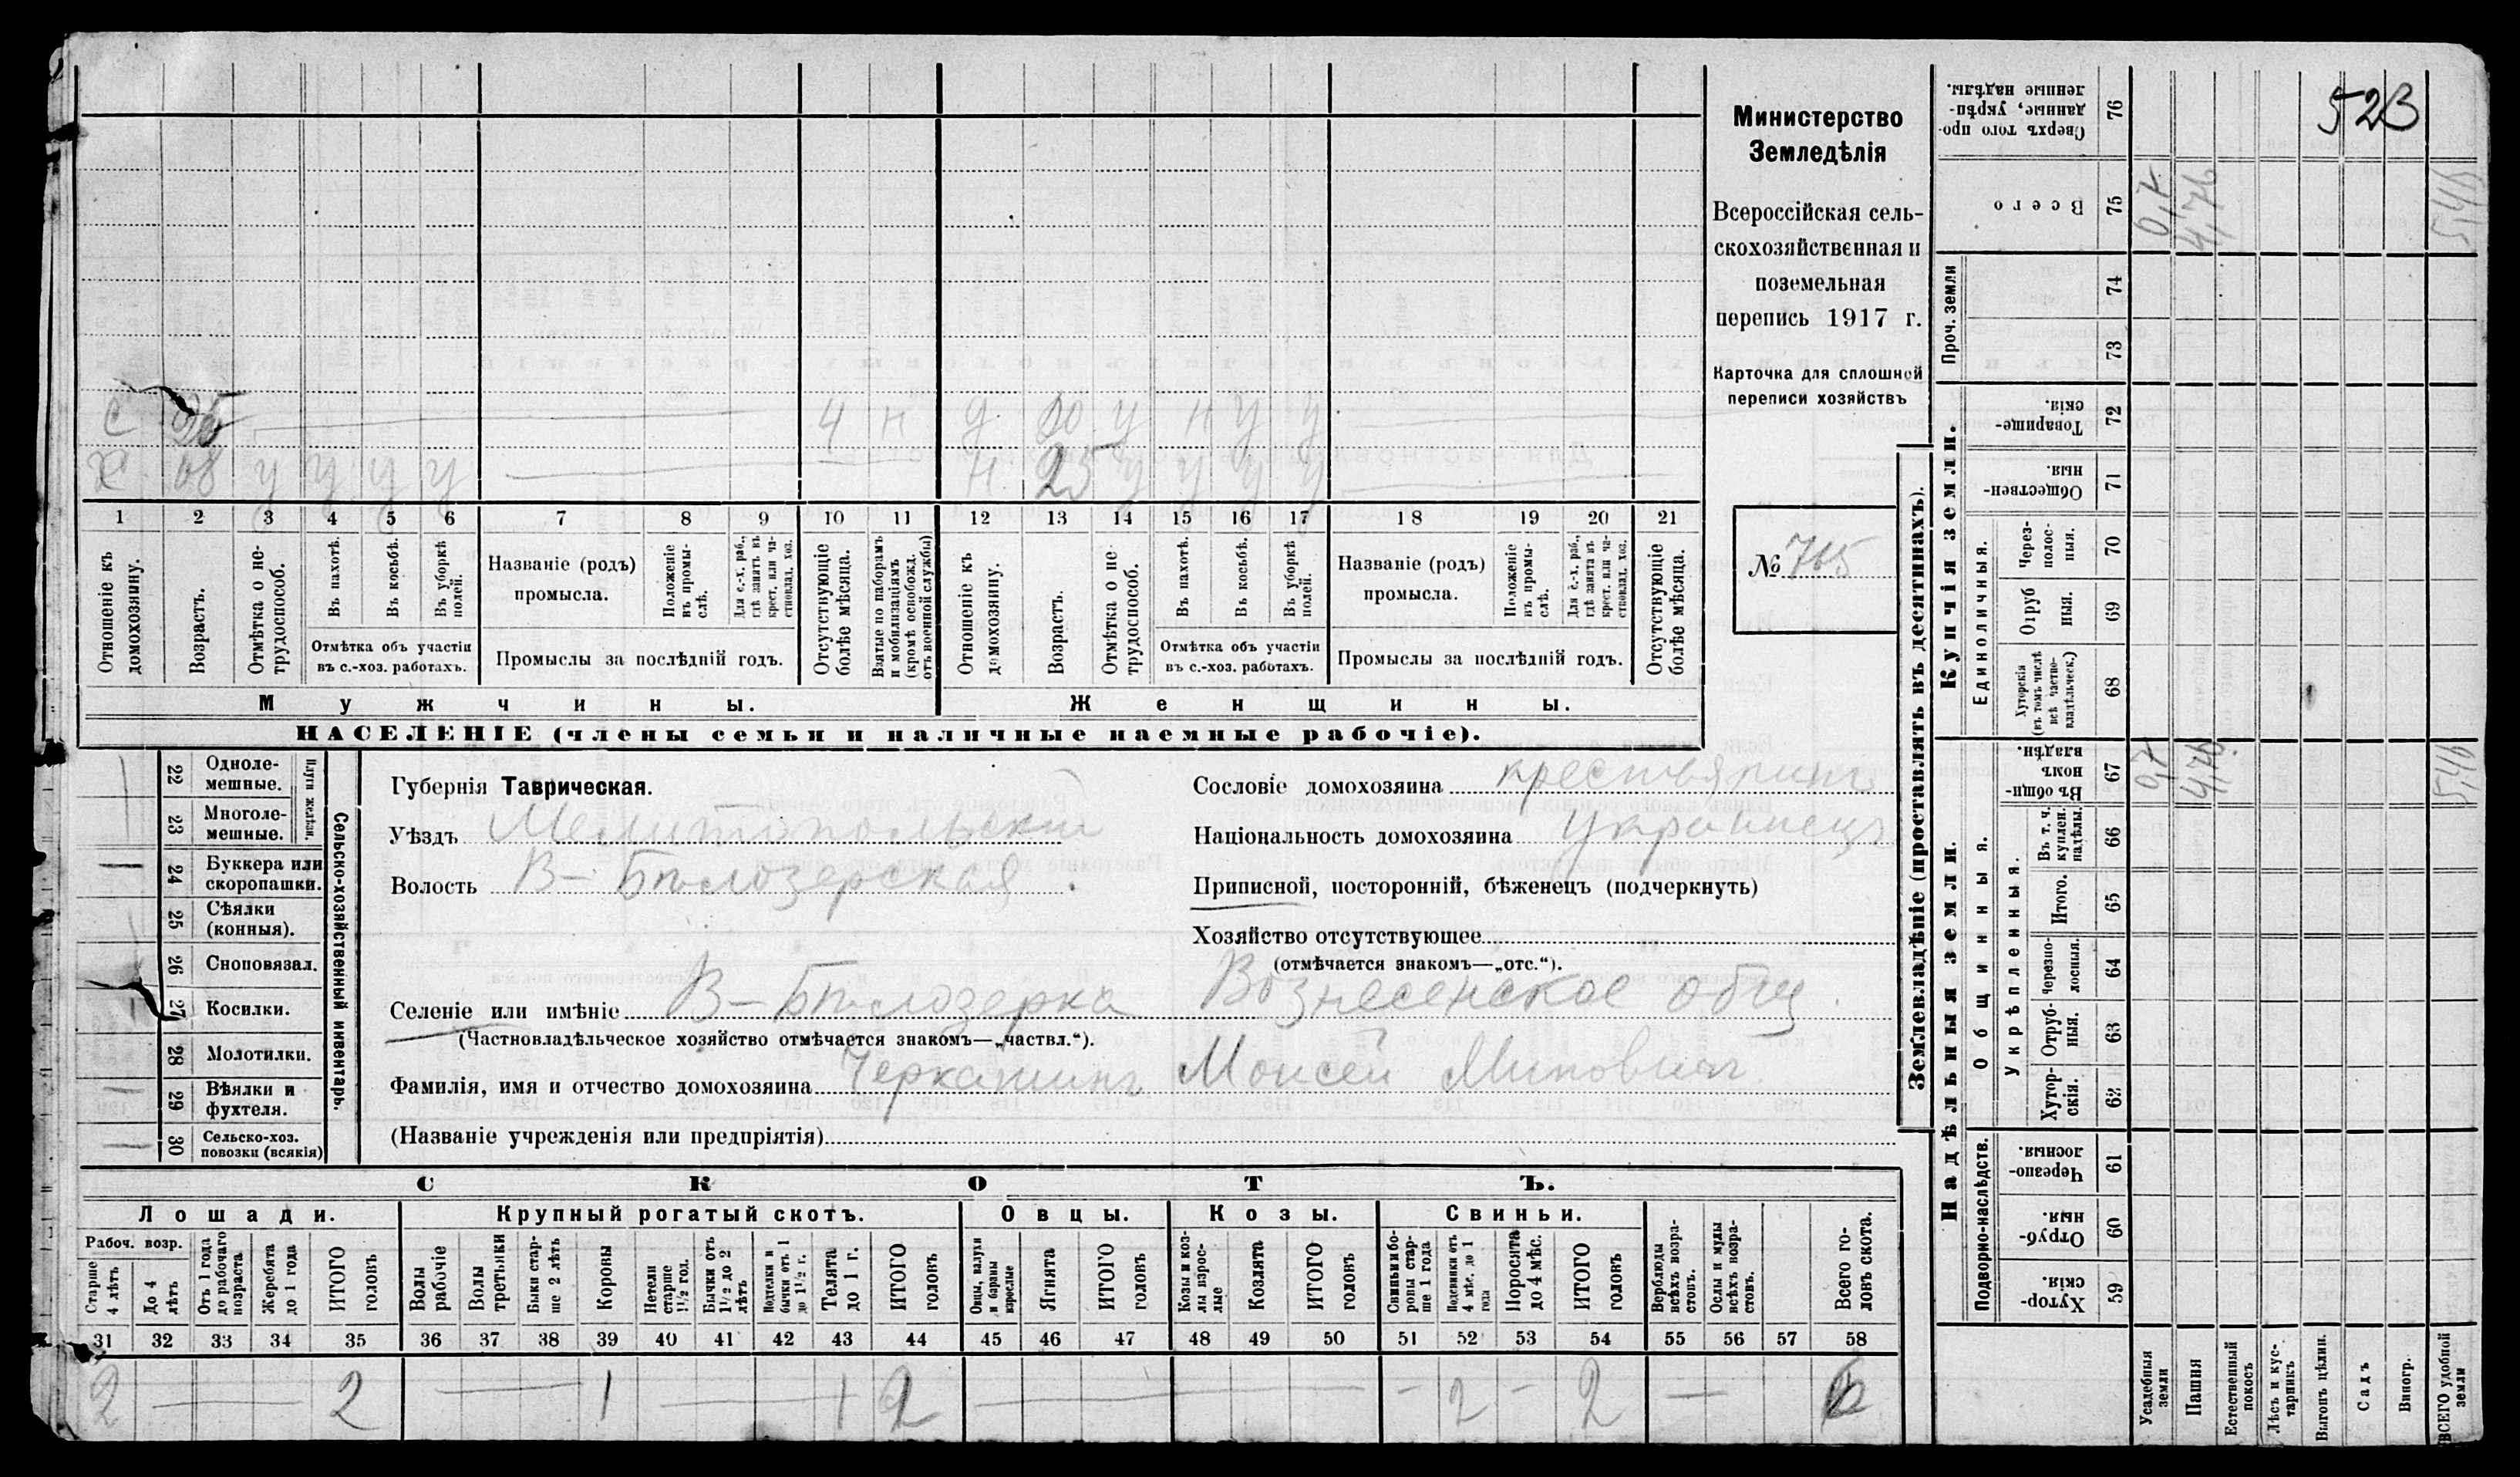 523
Министерство
Земледѣлія
Всероссійская сель-
скохозяйственная и
поземельная
перепись 1917 г.
Карточка для сплошной
переписи хозяйствъ
№ 765
С 4 н д у н у у
Х 68 у у у у н 25 у у у у
1 2 3 4 5 6 7 8 9 10 11 12 13 14 15 16 17 18 19 20 21
Отношеніе къ домохозяину.
Возрастъ.
Отмѣтка о не-трудоспособ.
Въ пахотѣ.
Въ косьбѣ.
Въ уборкѣ полей.
Отмѣтка объ участіи
въ с.-хоз. работахъ.
Названіе (родъ)
промысла.
Положеніе въ промы-слѣ.
Для с.-х. раб., гдѣ занятъ въ крест. или ча-стновлад. хоз.
Промыслы за послѣдній годъ.
Отсутствующіе болѣе мѣсяца.
Взятые по наборамъ и мобилизаціямъ (кромѣ освобожд. отъ военной службы)
Отношеніе къ домохозяину.
Возрастъ.
Отмѣтка о не-трудоспособ.
Въ пахотѣ.
Въ косьбѣ.
Въ уборкѣ полей.
Отмѣтка объ участіи
въ с.-хоз. работахъ.
Названіе (родъ)
промысла.
Положеніе въ промы-слѣ.
Для с.-х. раб., гдѣ занята въ крест. или ча-стновлад. хоз.
Промыслы за послѣдній годъ.
Отсутствующіе болѣе мѣсяца.
Мужчины.
Женщины.
НАСЕЛЕНІЕ (члены семьи и наличные наемные рабочіе).
22 Одноле-мешные.
23 Многоле-мешные.
Плуги желѣзн.
24 Буккера или скоропашки.
25 Сѣялки (конныя).
26 Сноповязал.
27 Косилки.
28 Молотилки.
29 Вѣялки и фухтеля.
30 Сельско-хоз. повозки (всякія)
Сельско-хозяйственный инвентарь.
Губернія Таврическая.
Уѣздъ Мелитопольскій
Волость В-Бѣлозерская.
Сословіе домохозяина крестьянинъ
Національность домохозяина украинецъ
Приписной, посторонній, бѣженецъ (подчеркнуть)
Хозяйство отсутствующее
(отмѣчается знакомъ—„отс.“).
Селеніе или имѣніе В-Бѣлозерка Вознесенское общ.
(Частновладѣльческое хозяйство отмѣчается знакомъ—„частвл.“).
Фамилія, имя и отчество домохозяина Черкашинъ Моисей Миновичъ
(Названіе учрежденія или предпріятія)
СКОТЪ.
Лошади. Крупный рогатый скотъ. Овцы. Козы. Свиньи.
Рабоч. возр.
Старше 4 лѣтъ
До 4 лѣтъ
Отъ 1 года до рабочаго возраста
Жеребята до 1 года
ИТОГО головъ
Волы рабочіе
Волы третьяки
Быки стар-ше 2 лѣтъ
Коровы
Нетели старше 1½ год.
Бычки отъ 1½ до 2 лѣтъ
Подтелки и бычки отъ 1 до 1½ г.
Телята до 1 г.
ИТОГО головъ
Овцы, валухи и бараны взрослые
Ягнята
ИТОГО головъ
Козы и коз-лы взрос-лые
Козлята
ИТОГО головъ
Свиньи и бо-ровы стар-ше 1 года
Подсвинки отъ 4 мѣс. до 1 года
Поросята до 4 мѣс.
ИТОГО головъ
Верблюды всѣхъ возра-стовъ.
Ослы и мулы всѣхъ возра-стовъ.
Всего го-ловъ скота.
31 32 33 34 35 36 37 38 39 40 41 42 43 44 45 46 47 48 49 50 51 52 53 54 55 56 57 58
2 — 2 — 1 — 1 2 — - 2 - 2 — 6
Землевладѣніе (проставлять въ десятинахъ).
Купчія земли.
Надѣльныя земли.
Сверхъ того про-данные, укрѣп-ленные надѣлы. 76
Всего 75 4,76 5,46
Проч. земли 74 73
Товарище-скія. 72
Обществен-ныя. 71
Единоличныя.
Через-полос-ныя. 70
Отруб-ныя. 69
Хуторскія (въ томъ числѣ всѣ частно-владѣльческ.) 68
Въ общин-номъ владѣн. 67 0,7 4,76 5,46
Общинныя.
Укрѣпленныя.
Въ т. ч. куплен. надѣлы. 66
Итого. 65
Черезпо-лосныя. 64
Отруб-ныя. 63
Хутор-скія. 62
Подворно-наслѣдств.
Черезпо-лосныя. 61
Отруб-ныя. 60
Хутор-скія. 59
Усадебныя земли
Пашня
Естественный покосъ
Лѣсъ и кус-тарникъ
Выгонъ цѣлин.
Садъ
Виногр.
ВСЕГО удобной земли